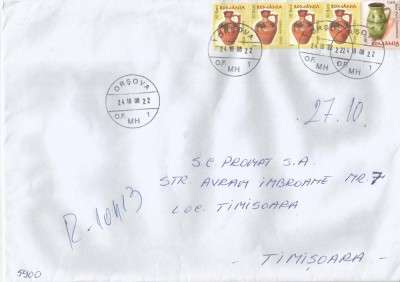 ROMÂNIA ROMÂNIA ROMÂNIA ROMÂNIA ROMÂNIA
ORŞOVA
24 10 08 22
O.F. 1
MH
ORŞOVA
24 10 08 22
O.F. 1
MH
ORŞOVA
O.F. 1
MH
ORŞOVA
24 10 08 22
O.F. 1
MH
27.10.
S.C. PROMPT S.A.
STR. AVRAM IMBROANE NR. 7
LOC. TIMISOARA
R. 10413
- TIMIŞOARA -
5900